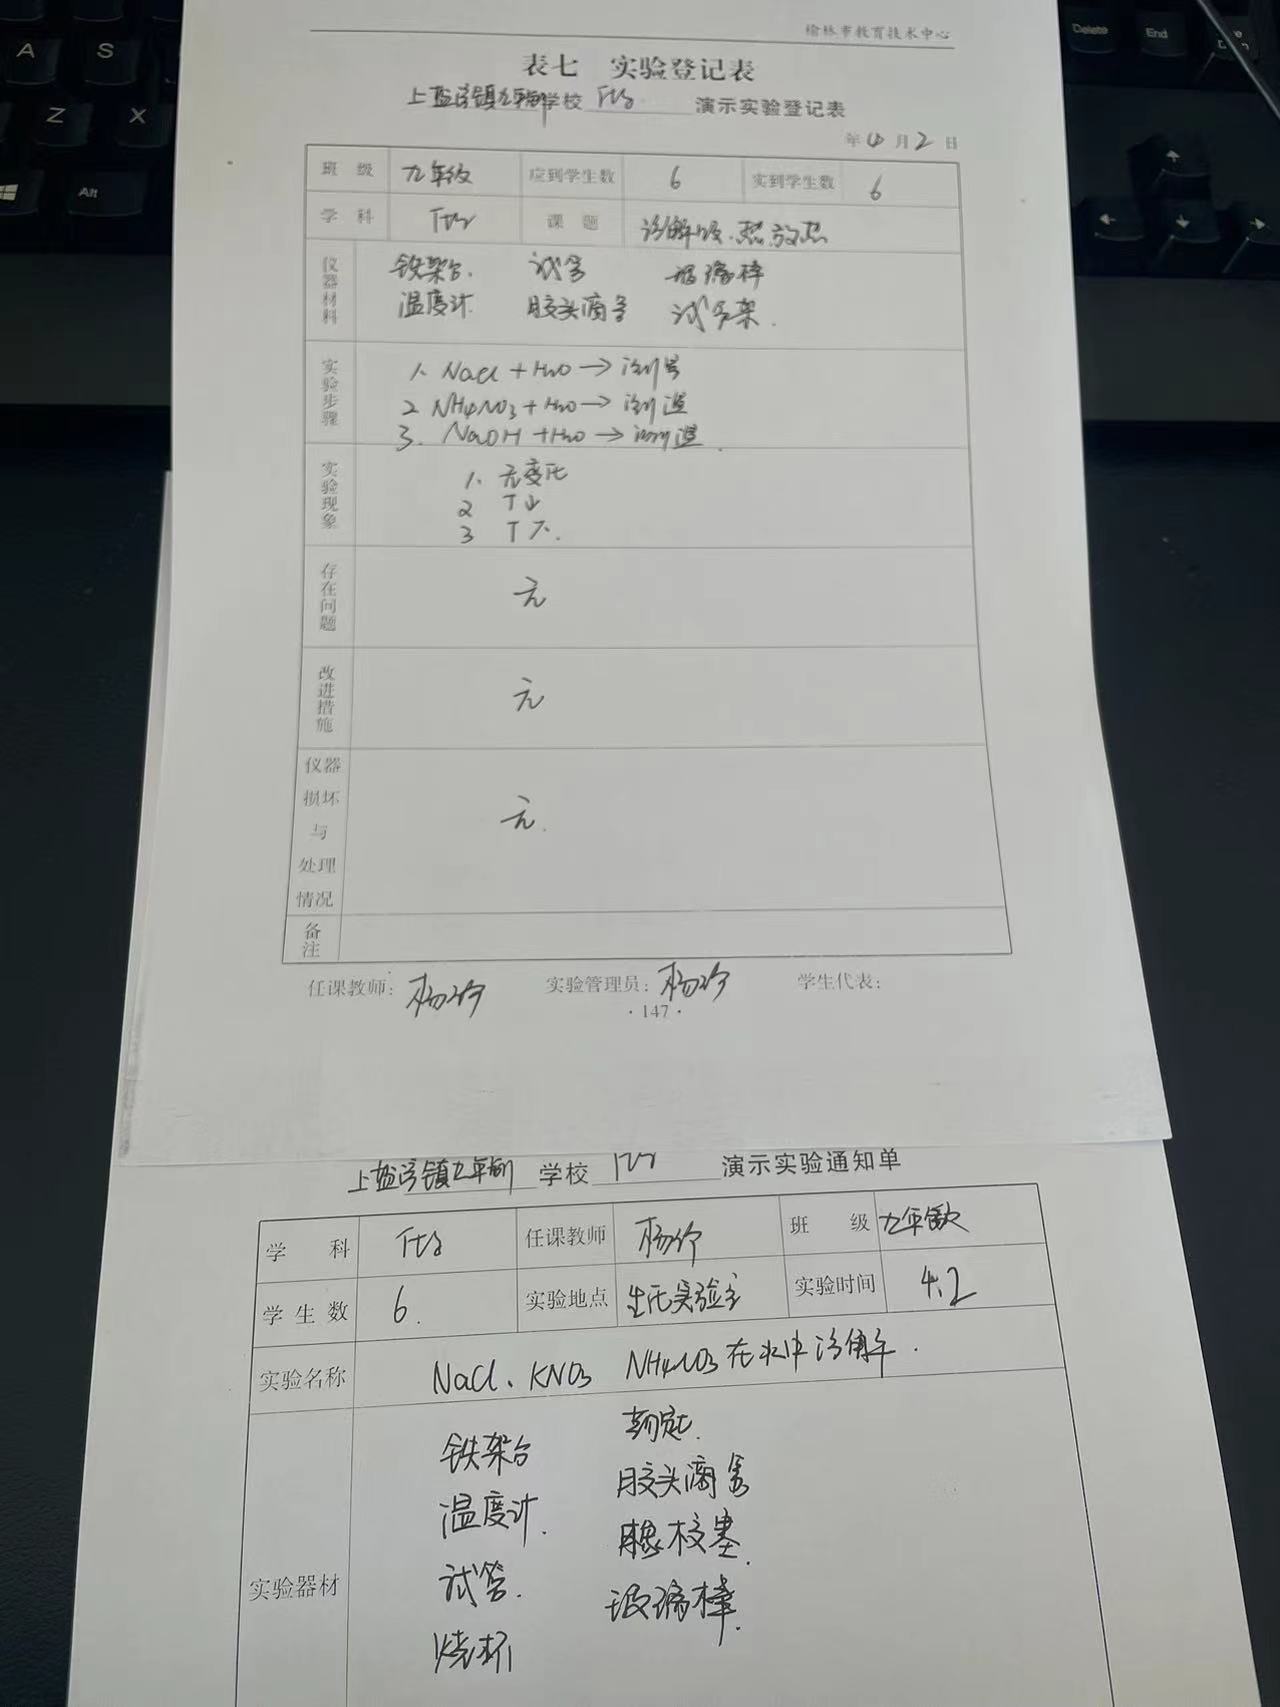 Delete
End
A
S
Z
X
Alt
榆林市教育技术中心
表七 实验登记表
学校 化学 演示实验登记表
年 4 月 2 日
班 级 九年级 应到学生数 6 实到学生数 6
学 科 化学 课 题 溶解吸热放热
仪器材料
铁架台. 试管 玻璃棒
温度计 胶头滴管 试管架.
实验步骤
1. NaCl + H₂O → 测温
2 NH4NO3 + H₂O → 测温
3. NaOH + H₂O → 测温.
实验现象
1. 无变化
2 T↓
3 T↑.
存在问题
无
改进措施
无
仪器损坏与处理情况
无.
备注
任课教师: 实验管理员: 学生代表:
· 147 ·
学校 化学 演示实验通知单
学 科 化学 任课教师 班 级 九年级
学 生 数 6. 实验地点 生化实验室 实验时间 4.2
实验名称 NaCl、KNO3 NH4NO3在水中溶解.
实验器材
铁架台 药匙.
温度计. 胶头滴管
试管. 橡皮塞.
烧杯 玻璃棒.